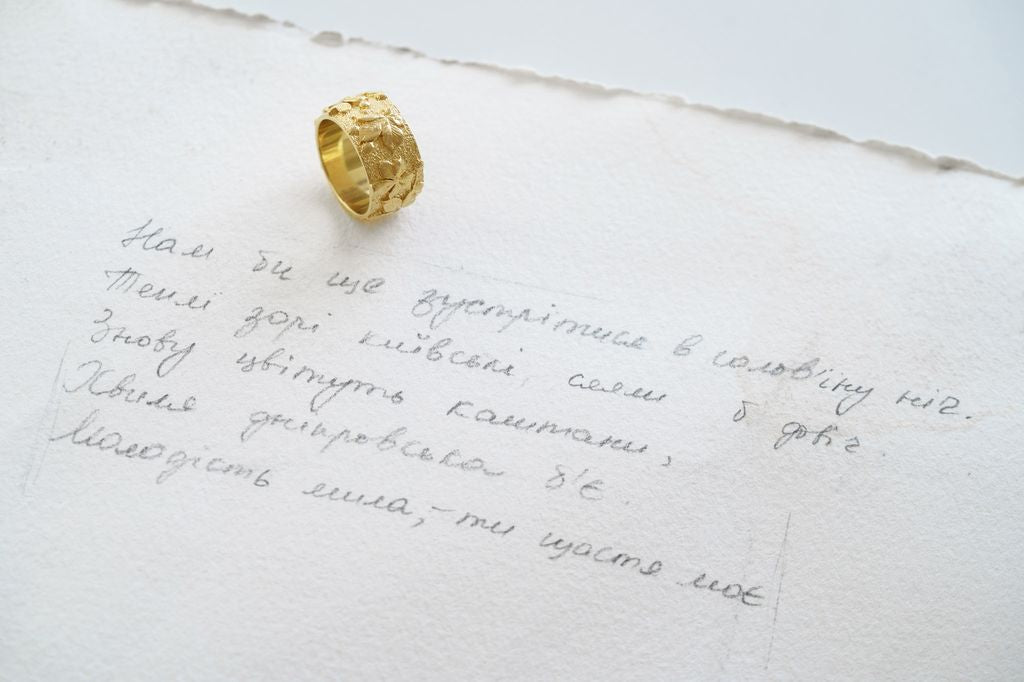 Нам би ще зустрітися в солов'їну ніч.
Теплі зорі київські, сяяли б довіч.
Знову цвітуть каштани,
Хвиля дніпровська б'є.
Молодість мила, – ти щастя моє